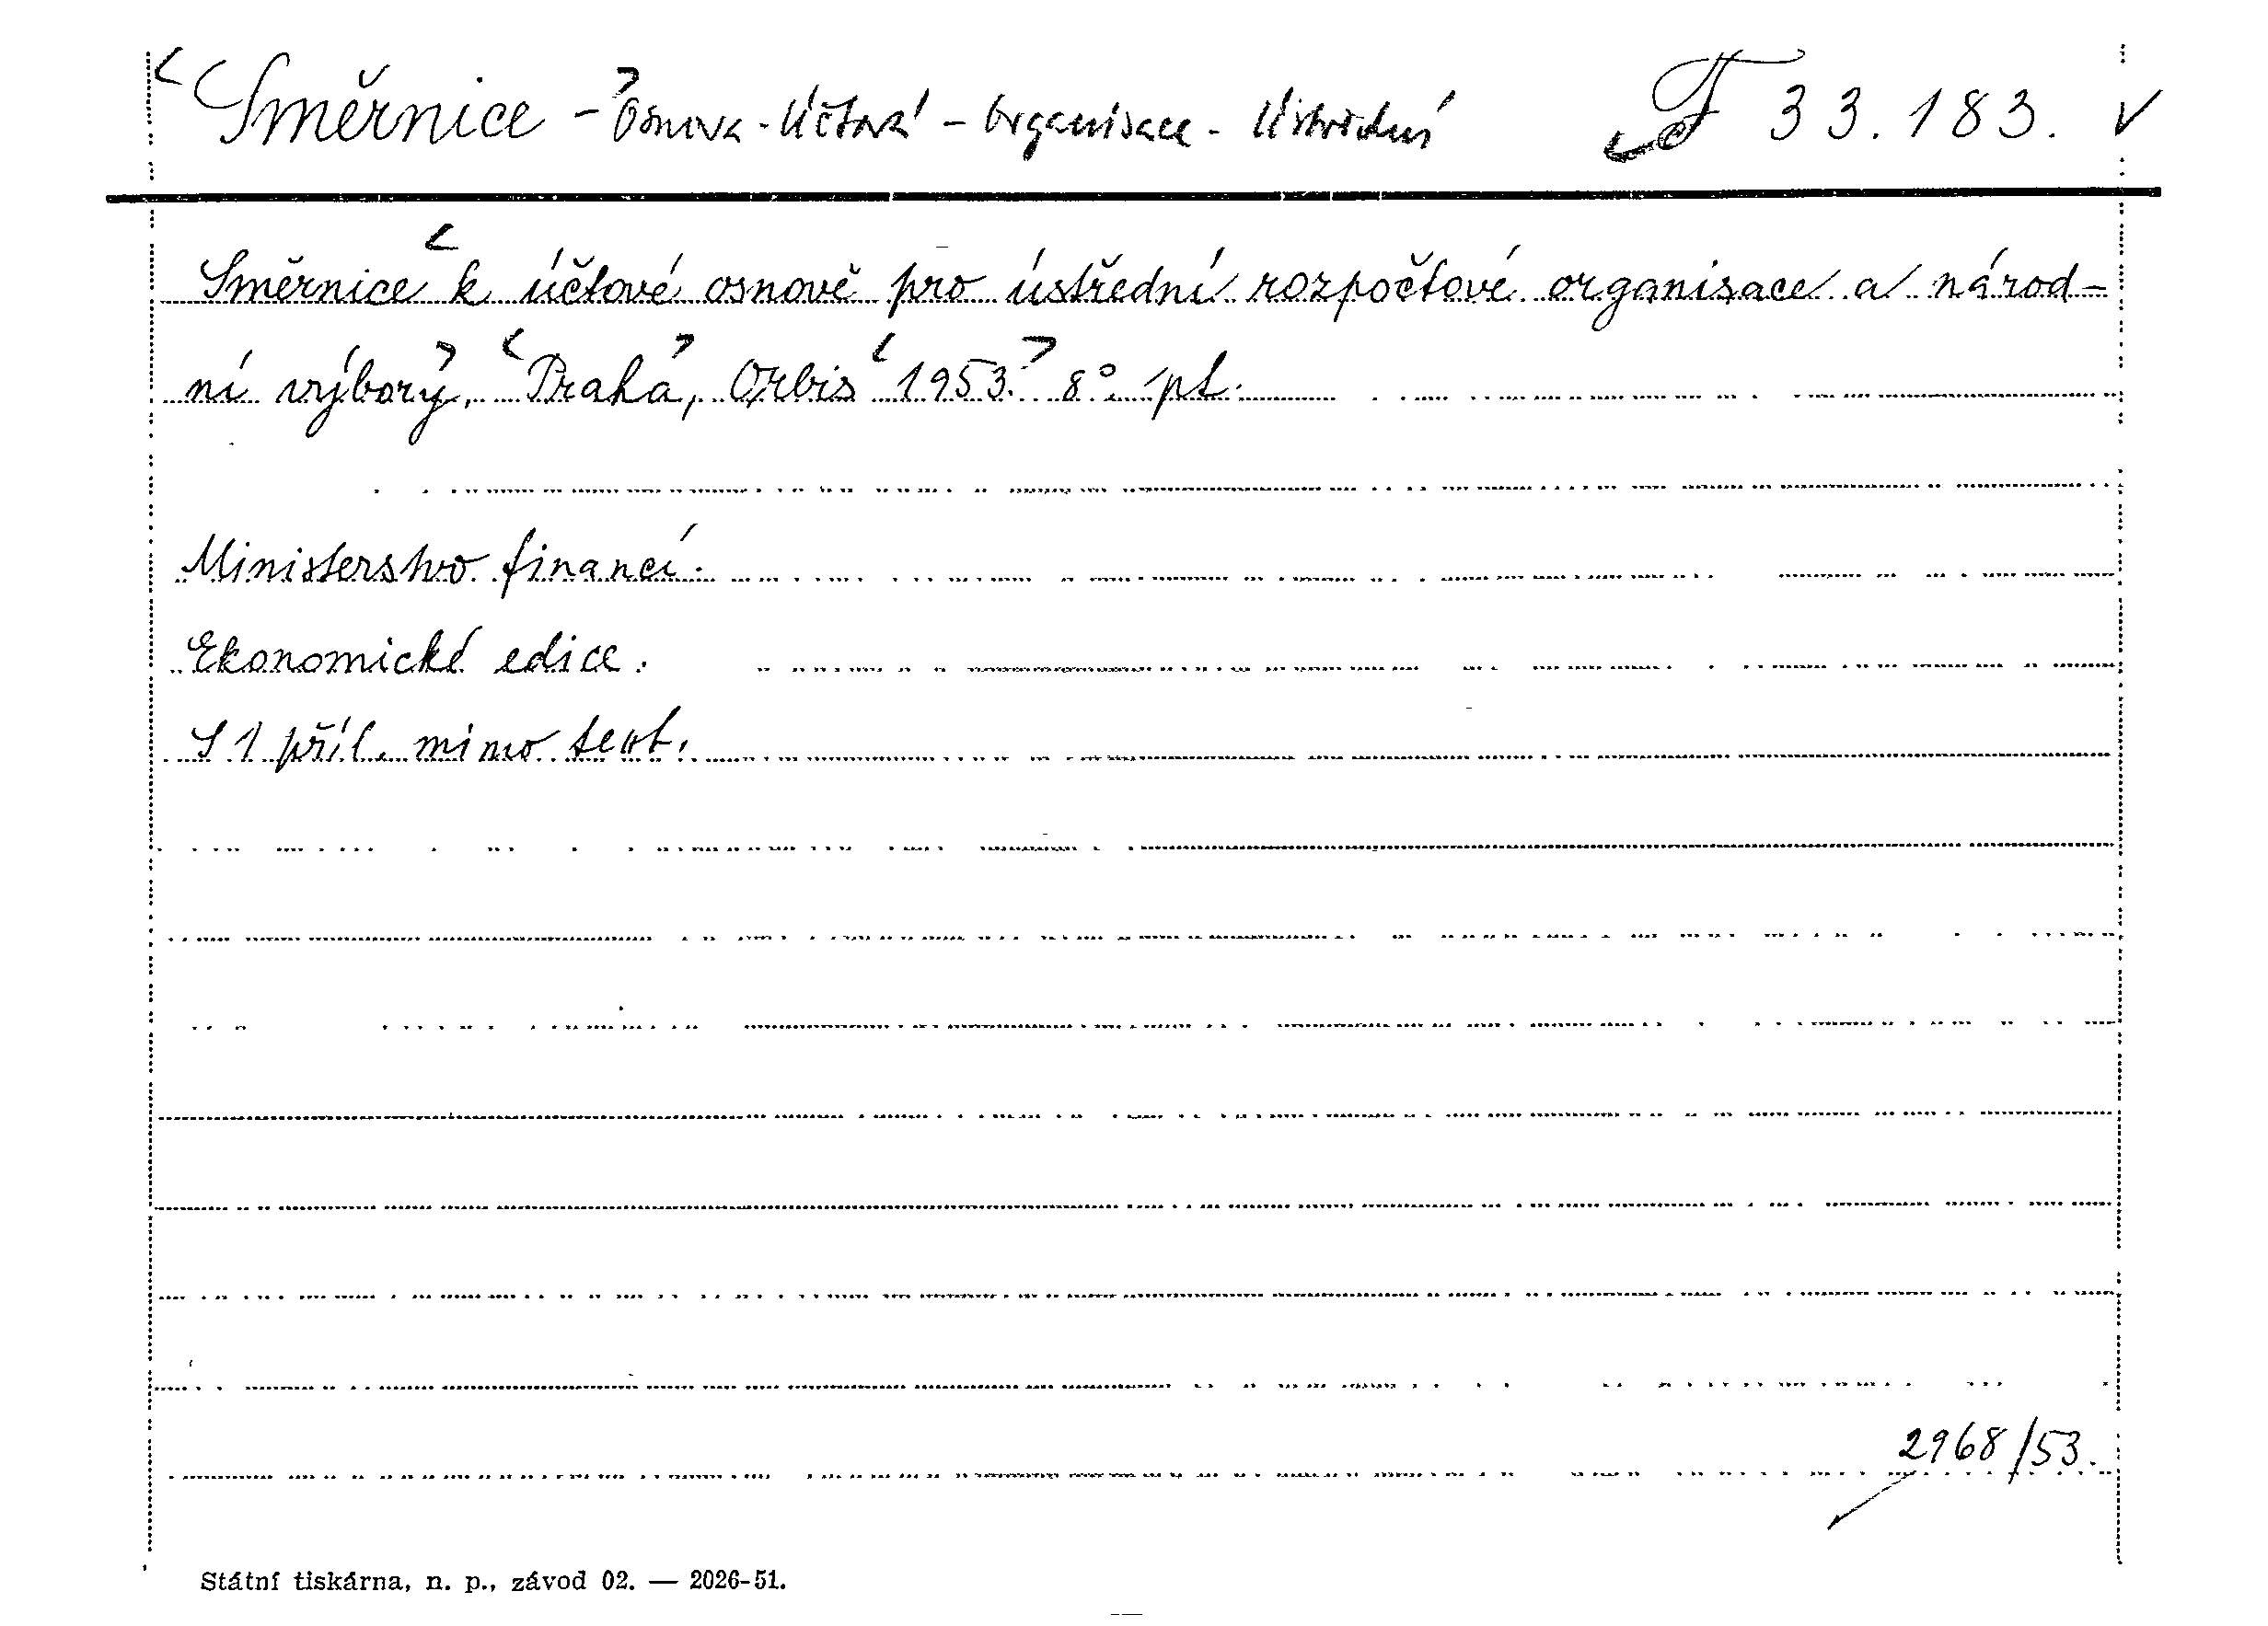 Směrnice - Osnova - Účtová - Organisace - Ústřední F 33.183.
Směrnice k účtové osnově pro ústřední rozpočtové organisace a národ-
ní výbory. Praha, Orbis 1953. 8° pt.
Ministerstvo financí.
Ekonomické edice.
S 1 příl. mimo text.
2968/53.
Státní tiskárna, n. p., závod 02. — 2026-51.